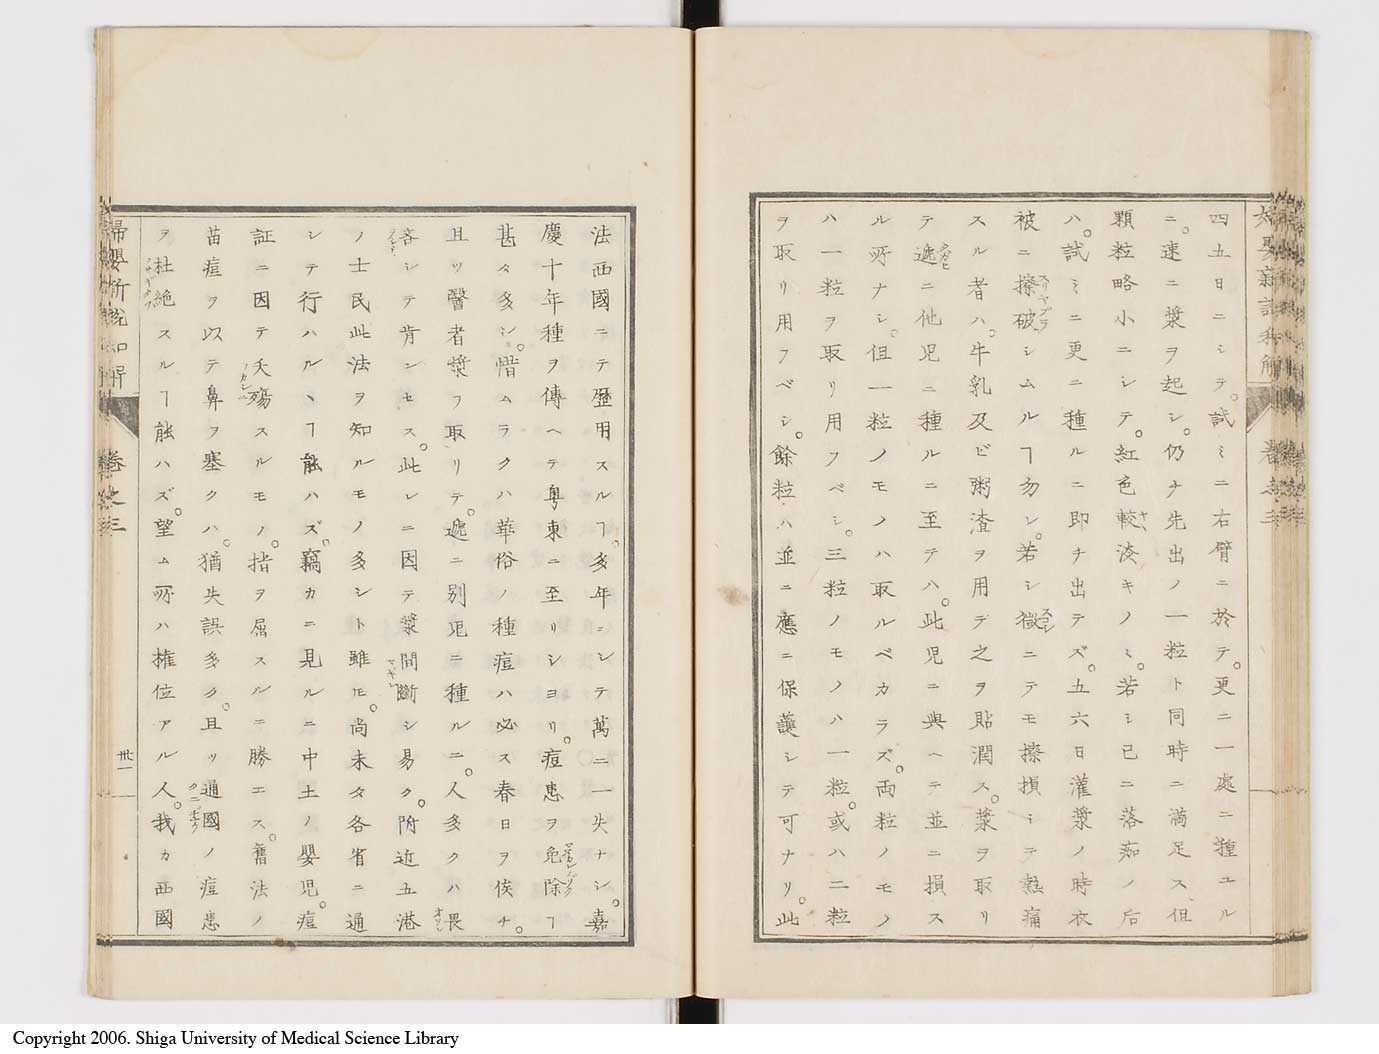 四五日ニシテ。試ミニ右臂ニ於テ。更ニ一處ニ種ユル
ニ。速ニ漿ヲ起シ。仍ナ先出ノ一粒ト同時ニ満足ス但
顆粒略小ニシテ。紅色較淡キノミ。若シ已ニ落痂ノ后
ハ。試ミニ更ニ種ルニ即チ出テズ。五六日灌漿ノ時衣
被ニ擦破シムルヿ勿レ。若シ微ニテモ擦損シテ熱痛
スル者ハ。牛乳及ビ粥渣ヲ用デ之ヲ貼潤ス。漿ヲ取リ
テ遞ニ他児ニ種ルニ至テハ。此児ニ與ヘテ並ニ損ス
ル所ナシ。但一粒ノモノハ取ルベカラズ。両粒ノモノ
ハ一粒ヲ取リ用フベシ。三粒ノモノハ一粒或ハ二粒
ヲ取リ用フベシ。餘粒ハ並ニ應ニ保護シテ可ナリ。此
法西國ニテ歴用スルヿ。多年ニシテ萬ニ一失ナシ。嘉
慶十年種ヲ傳ヘテ粤東ニ至リシヨリ。痘患ヲ免除ヿ
甚タ多シ。惜ムラクハ華俗ノ種痘ハ必ス春日ヲ俟チ。
且ツ醫者漿ヲ取リテ。遞ニ別児ニ種ルニ。人多クハ畏
吝シテ肯ンセス。此レニ因テ漿間斷シ易ク。附近五港
ノ士民此法ヲ知ルモノ多シト雖モ。尚未タ各省ニ通
シテ行ハルヽヿ能ハズ。竊カニ見ルニ中土ノ嬰児。痘
証ニ因テ夭殤スルモノ。指ヲ屈スルニ勝エス。舊法ノ
苗痘ヲ以テ鼻ヲ塞クハ。猶失誤多ク。且ツ通國ノ痘患
ヲ杜絶スルヿ能ハズ。望ム所ハ権位アル人。我カ西國
婦嬰新説和解
巻之三
卅一
Copyright 2006. Shiga University of Medical Science Library